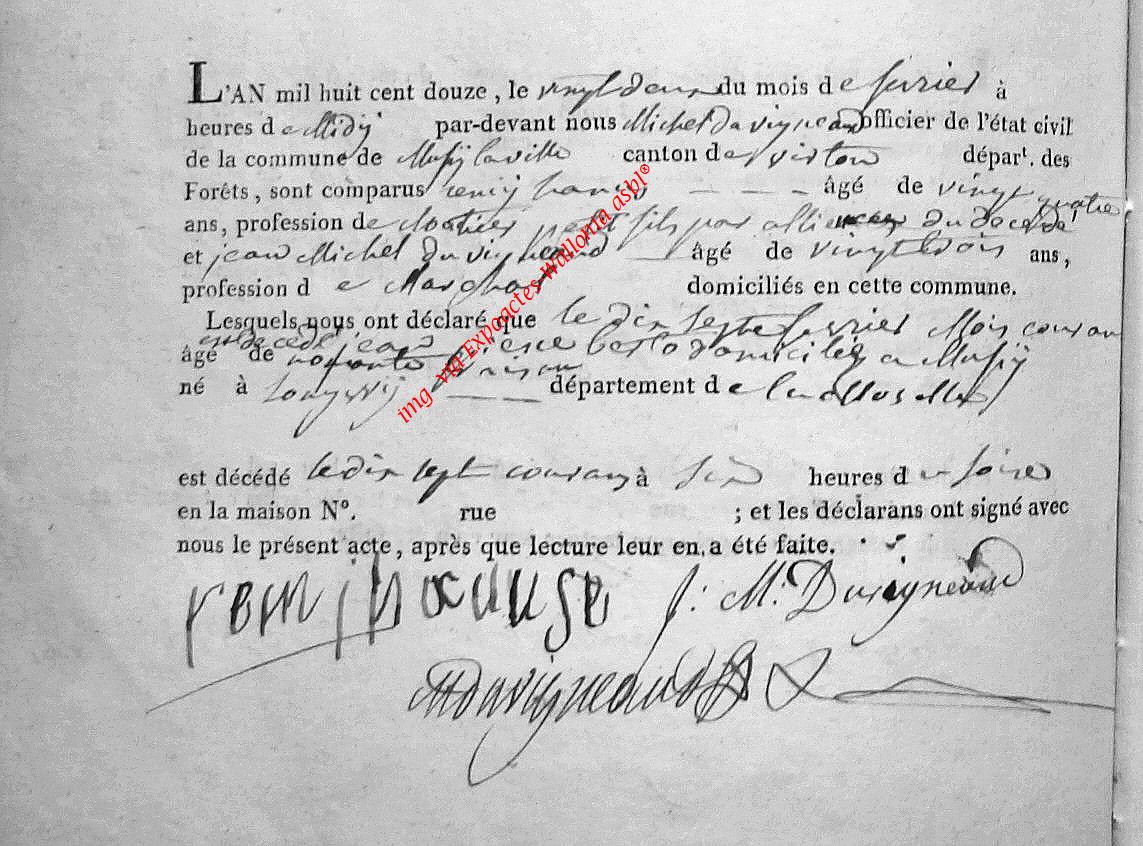 L'AN mil huit cent douze, le vingt deux du mois de fevrier à
heures de Midÿ par-devant nous Michel Duvigneaud officier de l'état civil
de la commune de Mussÿ laville canton de virton départ. des
Forêts, sont comparus remÿ âgé de vingt quatre
ans, profession de petit fils par du décédé
et jean Michel Duvigneaud âgé de vingt trois ans,
profession de domiciliés en cette commune.
Lesquels nous ont déclaré que le dix sept fevrier Mois courant
est décédé jean domicilié a Mussÿ
âgé de
né à Longwÿ département de la Moselle
est décédé le dix sept courant à six heures du soire
en la maison N°. rue ; et les déclarans ont signé avec
nous le présent acte, après que lecture leur en a été faite.
remÿ j: M: Duvigneaud
MDuvigneaud
img via Expoactes Wallonia asbl®